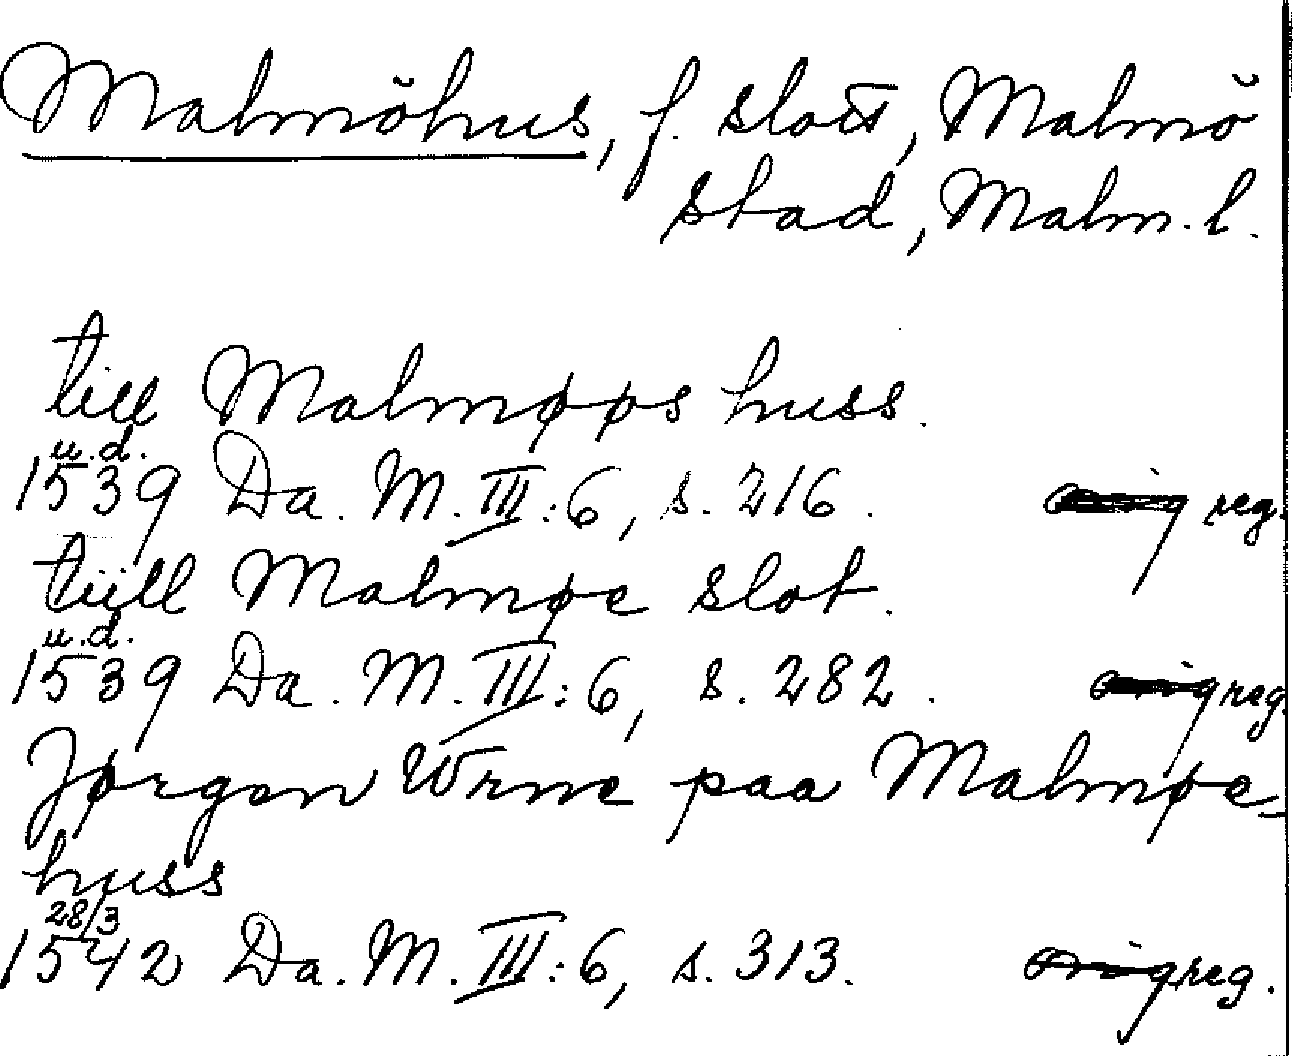 Malmöhus, f. slott, Malmö
stad, Malm. l.
till Malomøøs huss.
u.d.
1539 Da. M. III:6, s. 216. orig reg.
tiill Malmøe slot.
u.d.
1539 Da. M. III:6, s. 282. orig reg.
Jørgen Wrne paa Malmøe-
huss
28/3
1542 Da. M. III:6, s. 313. orig reg.